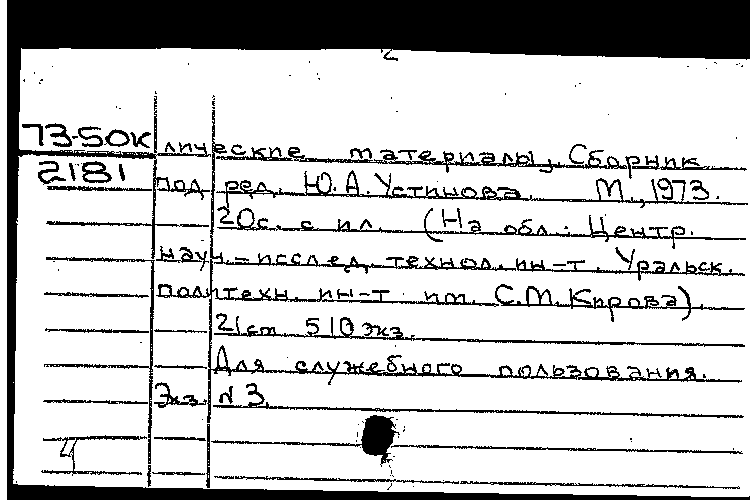 2
73-50К лические материалы, Сборник
2181 под ред. Ю.А.Устинова. М., 1973.
20с. с ил. (На обл.: Центр.
науч.-исслед. технол. ин-т. Уральск.
политехн. ин-т им. С.М.Кирова).
21см 510экз.
Для служебного пользования.
Экз. N3.
4